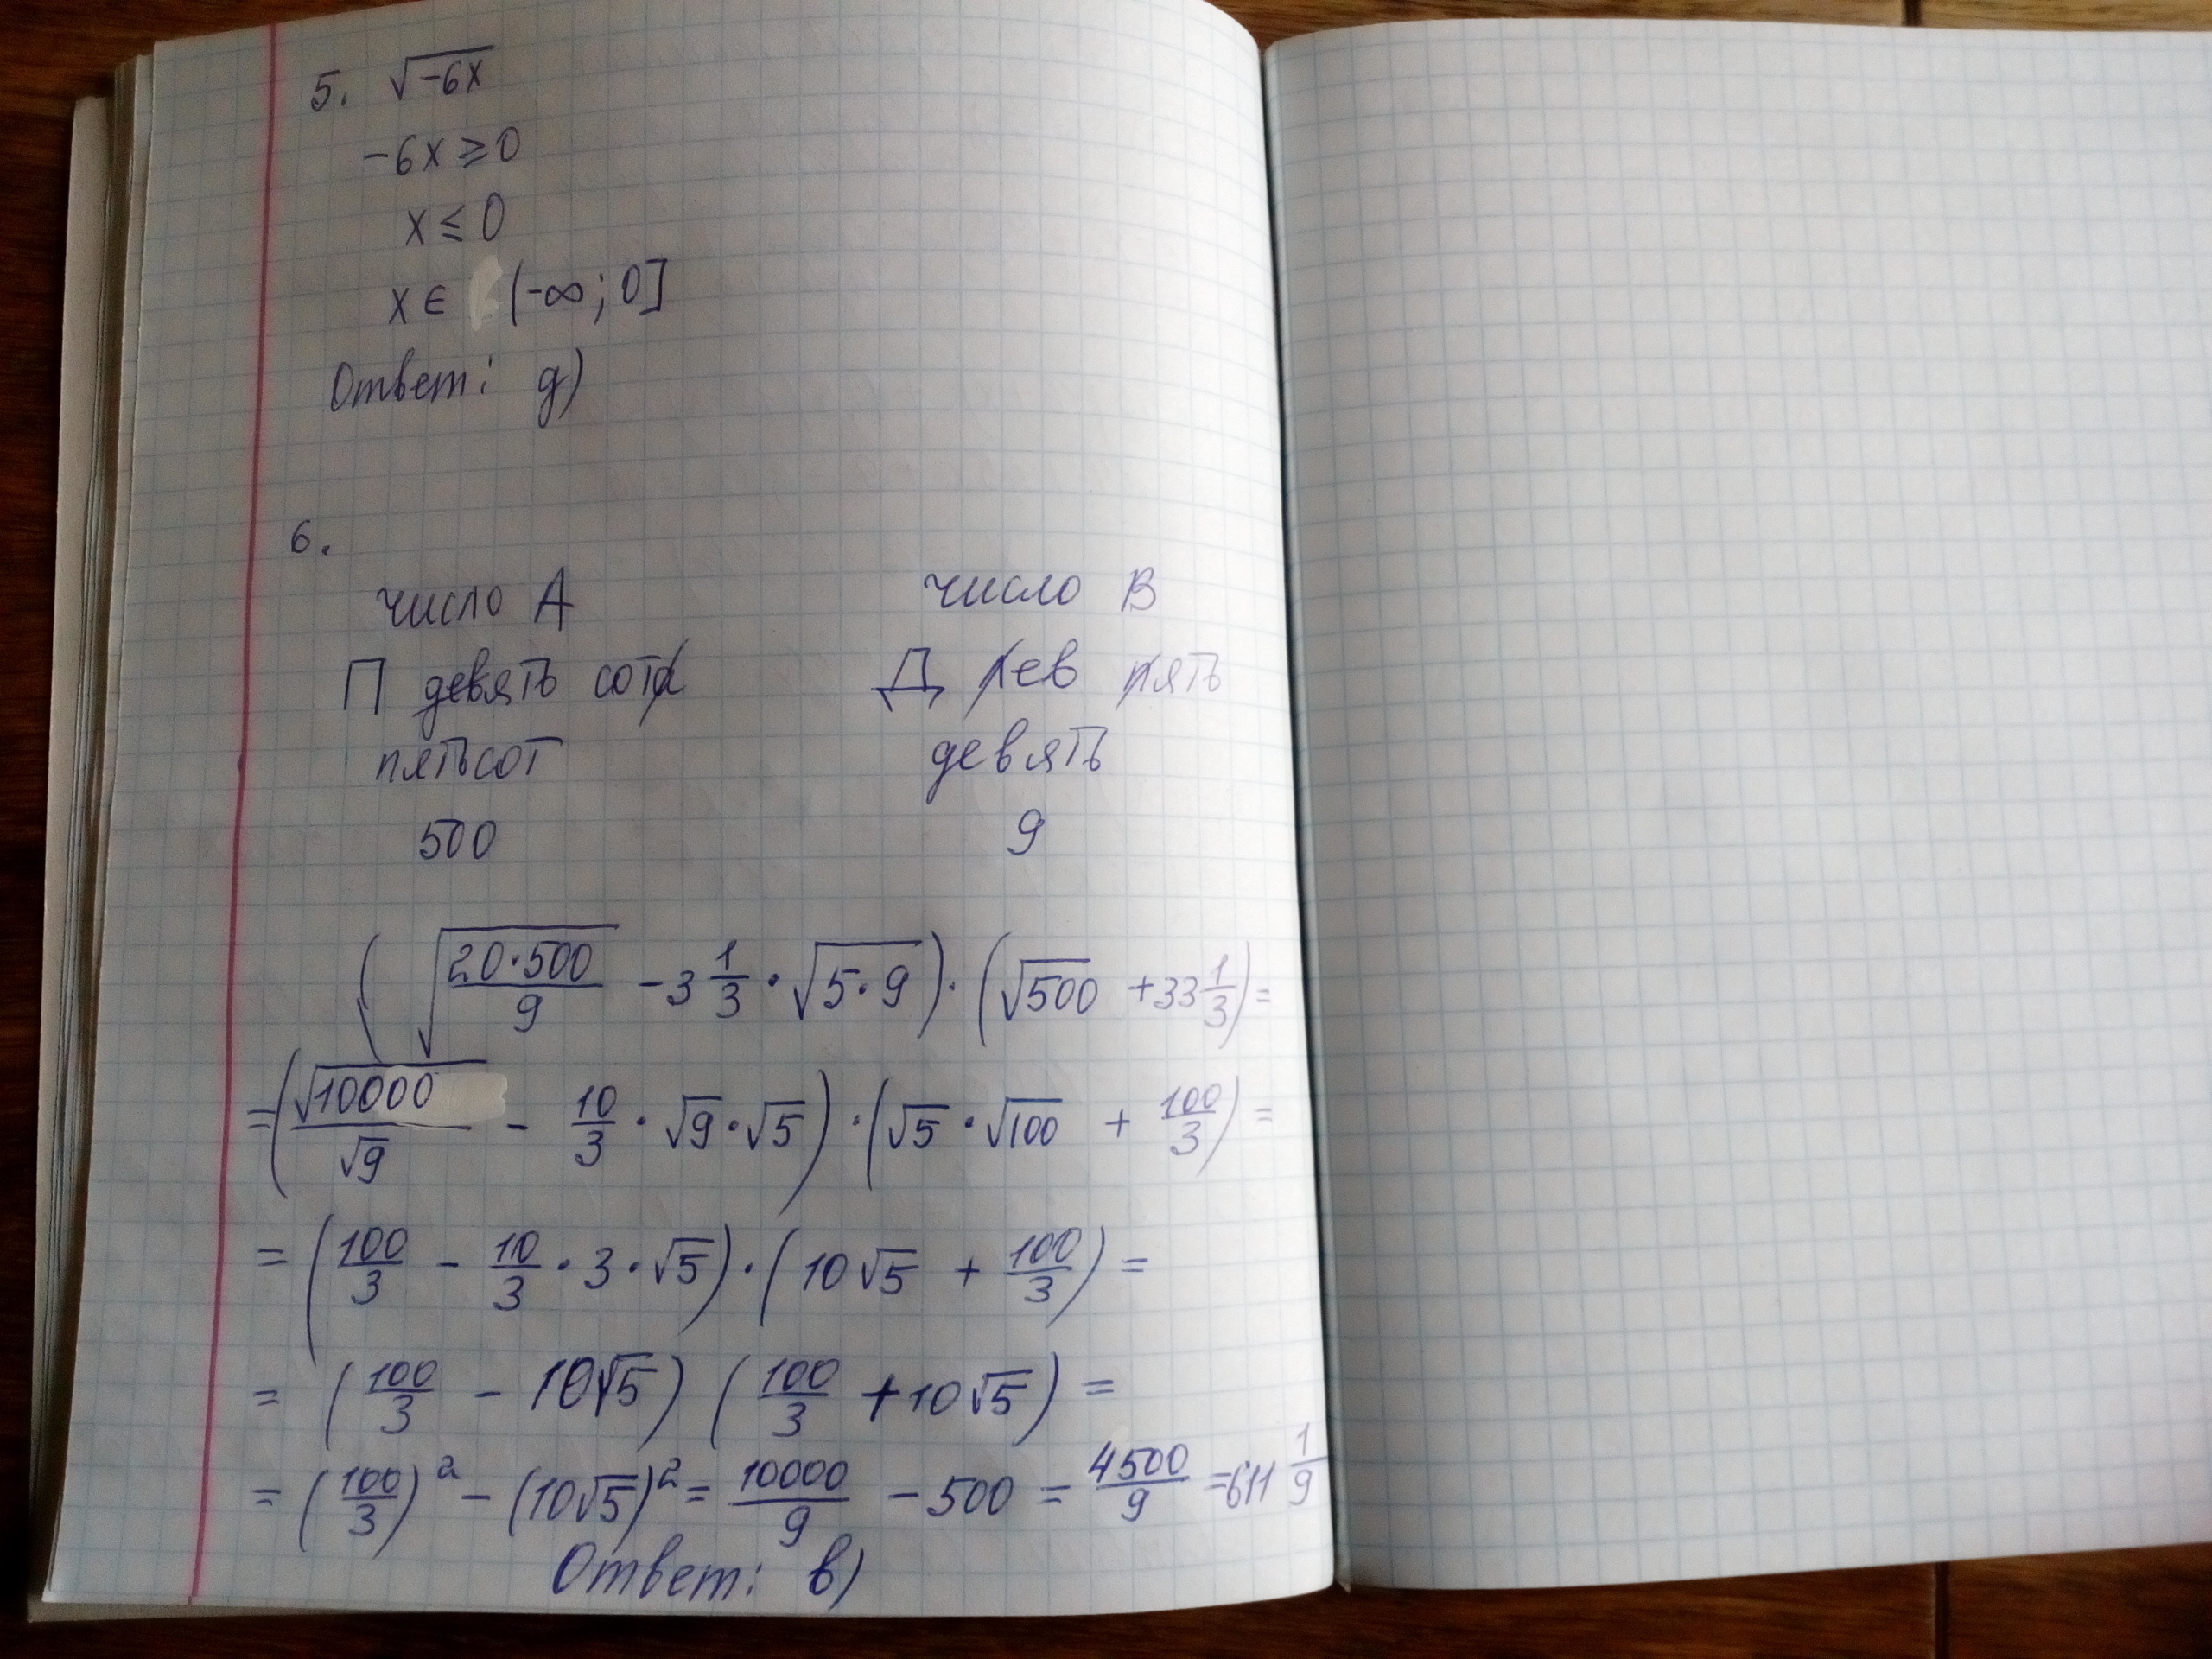 5. √-6x
-6x ≥ 0
x ≤ 0
x ∈ (-∞; 0]
Ответ: д)
6.
число А число В
П девять сота Д рев пять
пятьсот девять
500 9
(√(20·500/9) - 3 1/3 · √(5·9)) · (√500 + 33 1/3) =
= (√10000/√9 - 10/3 · √9 · √5) · (√5 · √100 + 100/3) =
= (100/3 - 10/3 · 3 · √5) · (10√5 + 100/3) =
= (100/3 - 10√5) (100/3 + 10√5) =
= (100/3)² - (10√5)² = 10000/9 - 500 = 4500/9 = 611 1/9
Ответ: в)